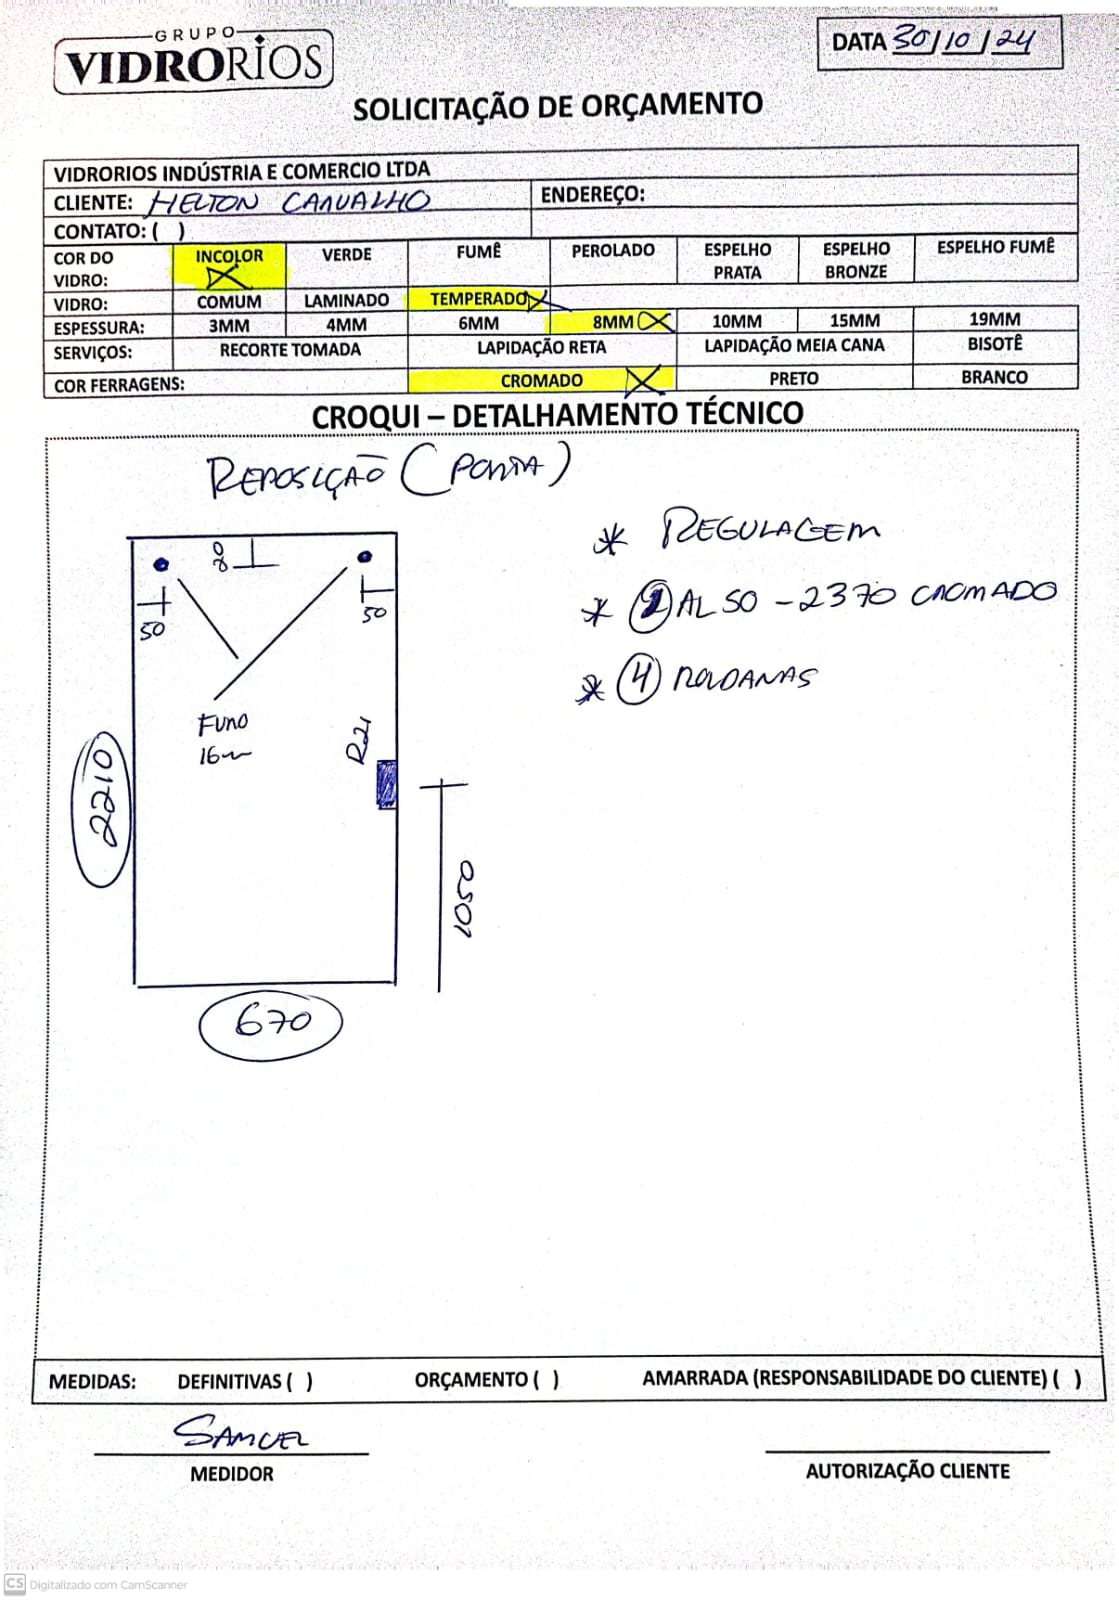 GRUPO
VIDRORIOS
DATA 30/10/24
SOLICITAÇÃO DE ORÇAMENTO
VIDRORIOS INDÚSTRIA E COMERCIO LTDA
CLIENTE: HELTON CARVALHO ENDEREÇO:
CONTATO: ( )
COR DO VIDRO: INCOLOR VERDE FUMÊ PEROLADO ESPELHO PRATA ESPELHO BRONZE ESPELHO FUMÊ
VIDRO: COMUM LAMINADO TEMPERADO
ESPESSURA: 3MM 4MM 6MM 8MM 10MM 15MM 19MM
SERVIÇOS: RECORTE TOMADA LAPIDAÇÃO RETA LAPIDAÇÃO MEIA CANA BISOTÊ
COR FERRAGENS: CROMADO PRETO BRANCO
CROQUI – DETALHAMENTO TÉCNICO
REPOSIÇÃO (PORTA)
* REGULAGEM
* AL SO - 2370 CROMADO
* 4 ROLDANAS
50
50
FURO
16
R21
2210
1050
670
MEDIDAS: DEFINITIVAS ( ) ORÇAMENTO ( ) AMARRADA (RESPONSABILIDADE DO CLIENTE) ( )
SAMUEL
MEDIDOR
AUTORIZAÇÃO CLIENTE
CS Digitalizado com CamScanner